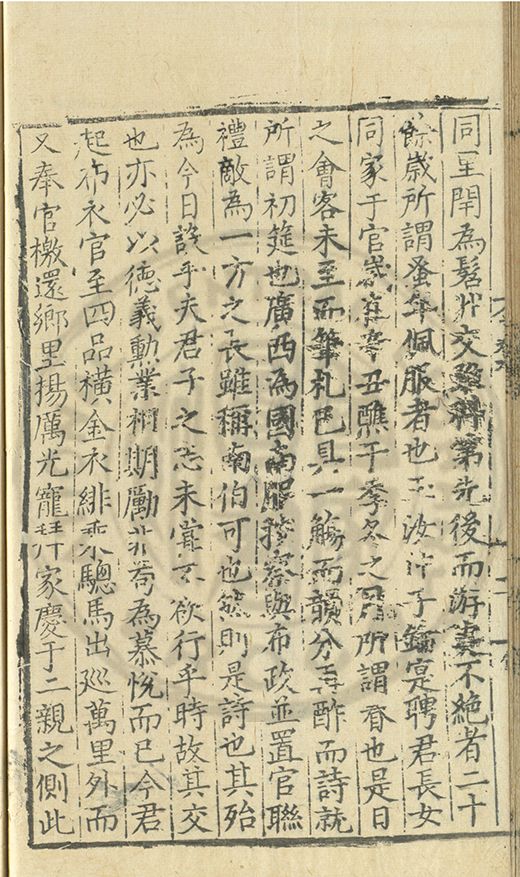 同里閈為髫丱交登科第先後而游處不絶者二十
餘歳所謂蚤年佩服者也玉汝仲子寔聘君長女
同家于官歳辛丑醮于季冬之君所謂眷也是日
之會客未至而筆札已具一觴而韻分再酢而詩就
所謂初筵也廣西為國南服按察與布政並置官聯
禮敵為一方之長雖稱南伯可也然則是詩也其殆
為今日設乎夫君子之志未嘗不欲行乎時故其交
也亦必以德義勲業相期勵非苟為慕悦而已今君
起布衣官至四品橫金衣緋乘驄馬出廵萬里外而
又奉官檄還鄉里揚厲光寵拜家慶于二親之側此